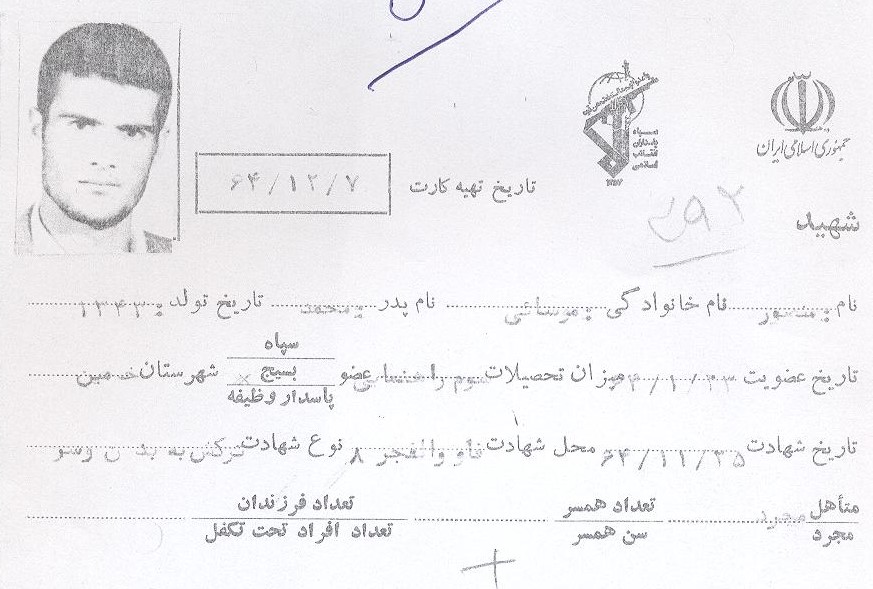 جمهوری اسلامی ایران
سپاه
پاسداران
انقلاب
اسلامی
۱۳۵۷
تاریخ تهیه کارت ۶۴/۱۲/۷
شهید
نام : منصور نام خانوادگی : موسائی نام پدر : محمد تاریخ تولد : ۱۳۴۳
تاریخ عضویت میزان تحصیلات سوم راهنمایی عضو سپاه بسیج × پاسدار وظیفه شهرستان خمین
تاریخ شهادت ۶۴/۱۱/۲۵ محل شهادت فاو والفجر ۸ نوع شهادت ترکش به بدن و سر
متأهل مجرد مجرد تعداد همسر سن همسر تعداد فرزندان تعداد افراد تحت تکفل